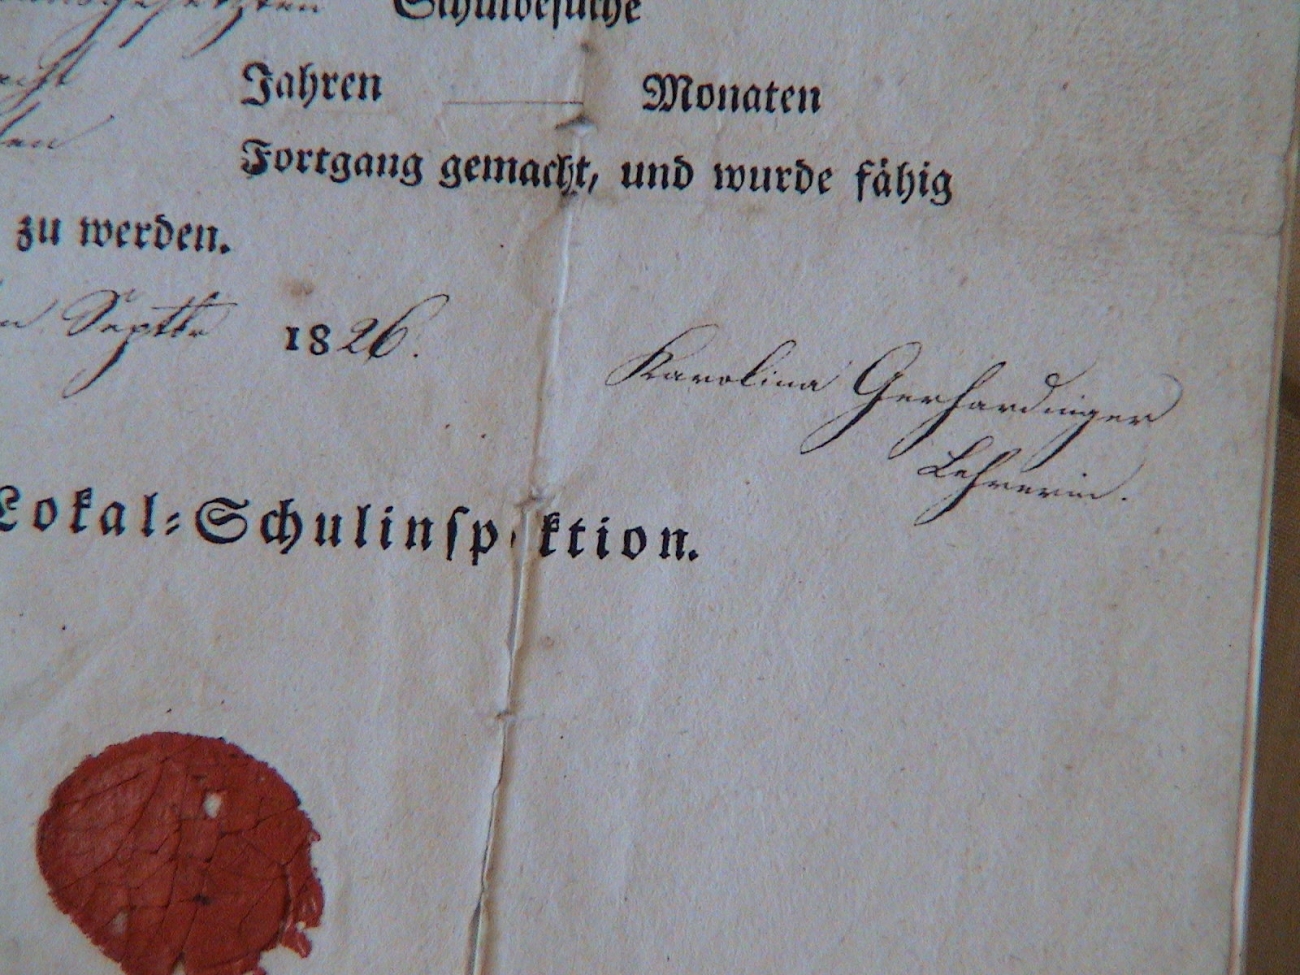 Schulbesuche
Jahren Monaten
Fortgang gemacht, und wurde fähig
zu werden.
Septbr 1826.
Karolina Gerhardinger
Lehrerin.
Lokal-Schulinspektion.